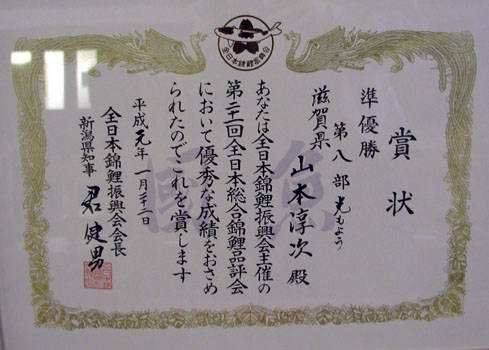 全日本錦鯉振興会
賞状
準優勝
第八部 光もよう
滋賀県 山本淳次 殿
あなたは全日本錦鯉振興会主催の
第二十一回全日本総合錦鯉品評会
において優秀な成績をおさめ
られたのでこれを賞します
平成元年一月二十二日
全日本錦鯉振興会会長
新潟県知事 君健男
國魚